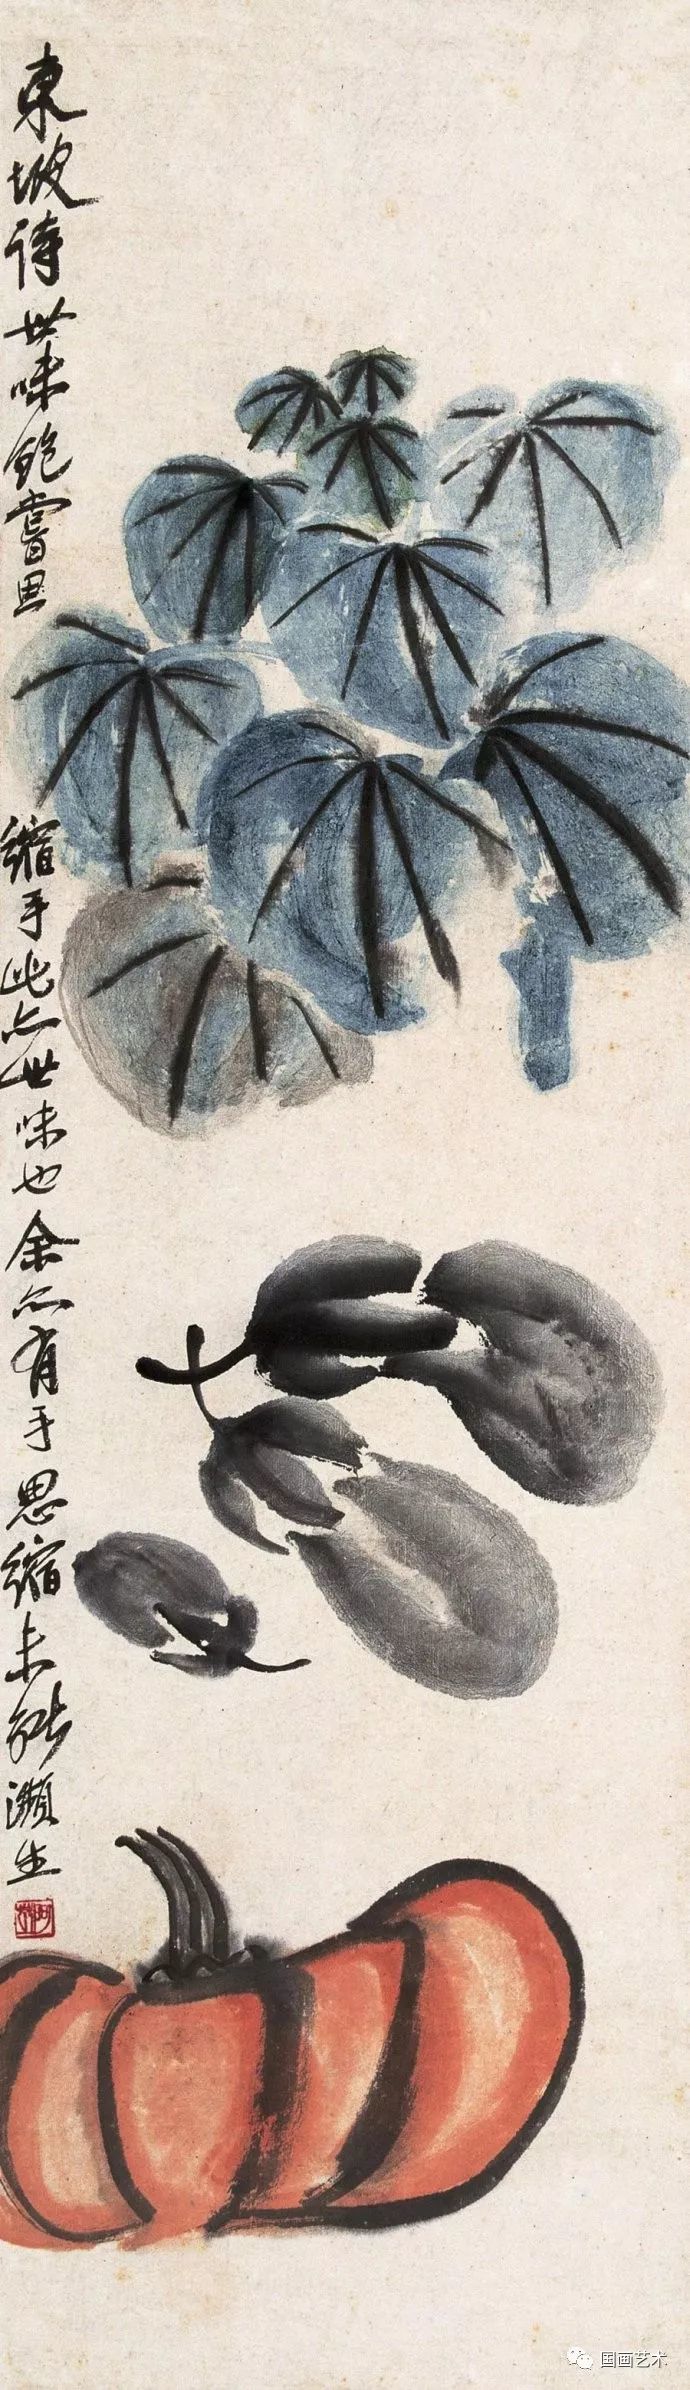 東坡詩世味飽嘗思縮手此亦世味也余亦有手思縮未能瀕生
阿芝
国画艺术